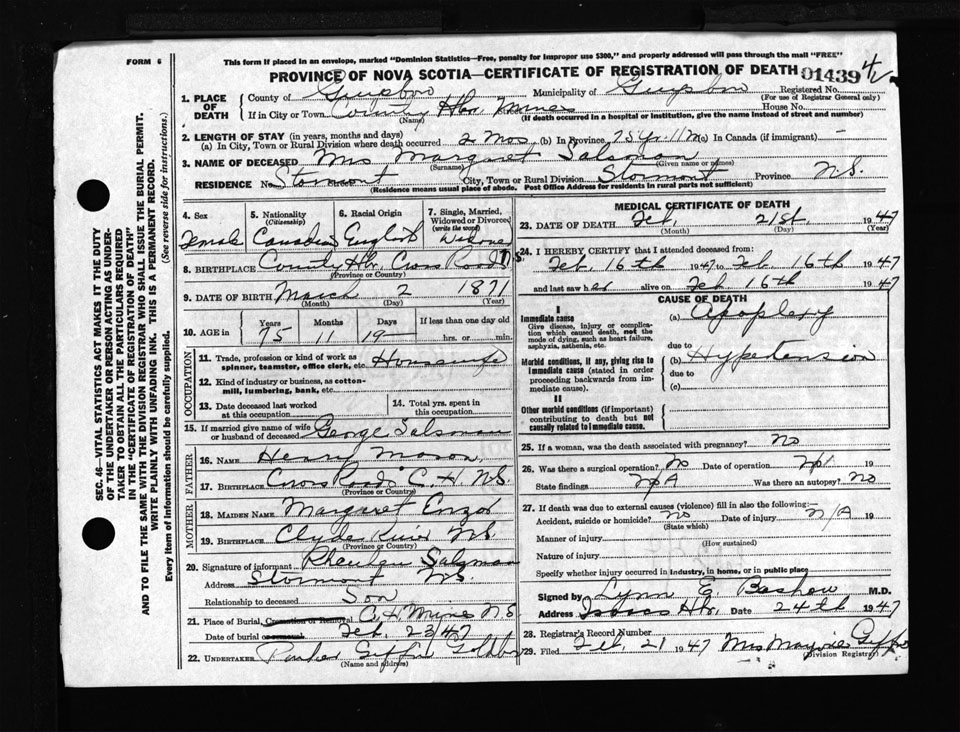 FORM 6
This form if placed in an envelope, marked "Dominion Statistics—Free, penalty for improper use $300," and properly addressed will pass through the mail "FREE"
PROVINCE OF NOVA SCOTIA—CERTIFICATE OF REGISTRATION OF DEATH 01439
1. PLACE OF DEATH County of Guysboro Municipality of Guysboro Registered No.
(For use of Registrar General only)
If in City or Town Country Hbr Mines House No.
(Name) (If death occurred in a hospital or institution, give the name instead of street and number)
2. LENGTH OF STAY (in years, months and days)
(a) In City, Town or Rural Division where death occurred 2 mos. (b) In Province 75 Yr. 11 M (c) In Canada (if immigrant) -
3. NAME OF DECEASED Mrs Margaret Salsman
(Surname) (Given name or names)
RESIDENCE No. Stormont City, Town or Rural Division Stormont Province N.S.
(Residence means usual place of abode. Post Office Address for residents in rural parts not sufficient)
4. Sex 5. Nationality (Citizenship) 6. Racial Origin 7. Single, Married, Widowed or Divorced (write the word)
Female Canadian English Widow
8. BIRTHPLACE Country Hbr Cross Roads N.S.
(Province or Country)
9. DATE OF BIRTH March 2 1871
(Month) (Day) (Year)
10. AGE in Years Months Days If less than one day old
75 11 19 hrs. or min.
OCCUPATION
11. Trade, profession or kind of work as spinner, teamster, office clerk, etc. Housewife
12. Kind of industry or business, as cotton-mill, lumbering, bank, etc.
13. Date deceased last worked at this occupation
14. Total yrs. spent in this occupation
15. If married give name of wife or husband of deceased George Salsman
FATHER
16. NAME Henry Mason
17. BIRTHPLACE Cross Roads C. H. N.S.
(Province or Country)
MOTHER
18. MAIDEN NAME Margaret
19. BIRTHPLACE Clyde River N.S.
(Province or Country)
20. Signature of informant Salsman
Address Stormont N.S.
Relationship to deceased Son
21. Place of Burial, Cremation or Removal C. H. Mines N.S.
Date of burial or removal Feb. 23/47
22. UNDERTAKER Parker Giffin Goldbro
(Name and address)
MEDICAL CERTIFICATE OF DEATH
23. DATE OF DEATH Feb, 21st, 1947
(Month) (Day) (Year)
24. I HEREBY CERTIFY that I attended deceased from
Feb. 16th 1947 to Feb. 16th 1947
and last saw her alive on Feb. 16th 1947
CAUSE OF DEATH
I
Immediate cause
Give disease, injury or complication which caused death, not the mode of dying, such as heart failure, asphyxia, asthenia, etc.
(a) Apoplexy
due to
Morbid conditions, if any, giving rise to immediate cause (stated in order proceeding backwards from immediate cause).
(b) Hypertension
due to
(c)
II
Other morbid conditions (if important) contributing to death but not causally related to immediate cause.
25. If a woman, was the death associated with pregnancy? No
26. Was there a surgical operation? No Date of operation N/A 19
State findings N/A Was there an autopsy? No
27. If death was due to external causes (violence) fill in also the following:—
Accident, suicide or homicide? No Date of injury N/A 19
(State which)
Manner of injury
(How sustained)
Nature of injury
Specify whether injury occurred in industry, in home, or in public place
Signed by Lynn E. Bashow M.D.
Address Isaacs Hbr. Date 24th 1947
28. Registrar's Record Number
29. Filed Feb. 21 1947 Mrs
(Division Registrar)
SEC. 46—VITAL STATISTICS ACT MAKES IT THE DUTY
OF THE UNDERTAKER OR PERSON ACTING AS UNDER-
TAKER TO OBTAIN ALL THE PARTICULARS REQUIRED
IN THE "CERTIFICATE OF REGISTRATION OF DEATH"
AND TO FILE THE SAME WITH THE DIVISION REGISTRAR WHO SHALL ISSUE THE BURIAL PERMIT.
WRITE PLAINLY WITH UNFADING INK. THIS IS A PERMANENT RECORD.
Every item of information should be carefully supplied. (See reverse side for instructions.)